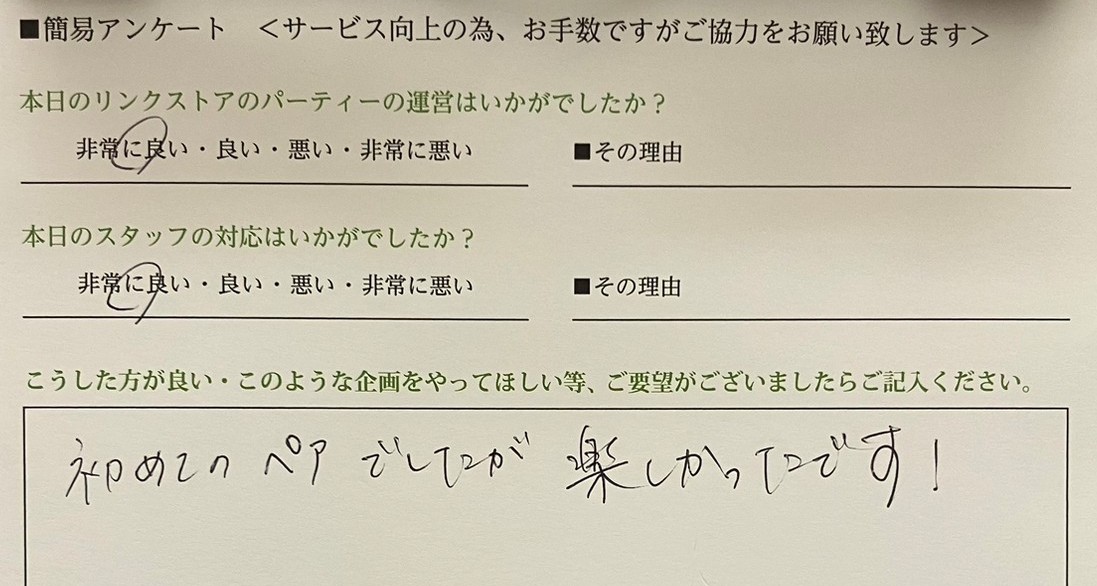 ■簡易アンケート ＜サービス向上の為、お手数ですがご協力をお願い致します＞
本日のリンクストアのパーティーの運営はいかがでしたか？
非常に良い・良い・悪い・非常に悪い ■その理由
本日のスタッフの対応はいかがでしたか？
非常に良い・良い・悪い・非常に悪い ■その理由
こうした方が良い・このような企画をやってほしい等、ご要望がございましたらご記入ください。
初めてのペアでしたが楽しかったです！